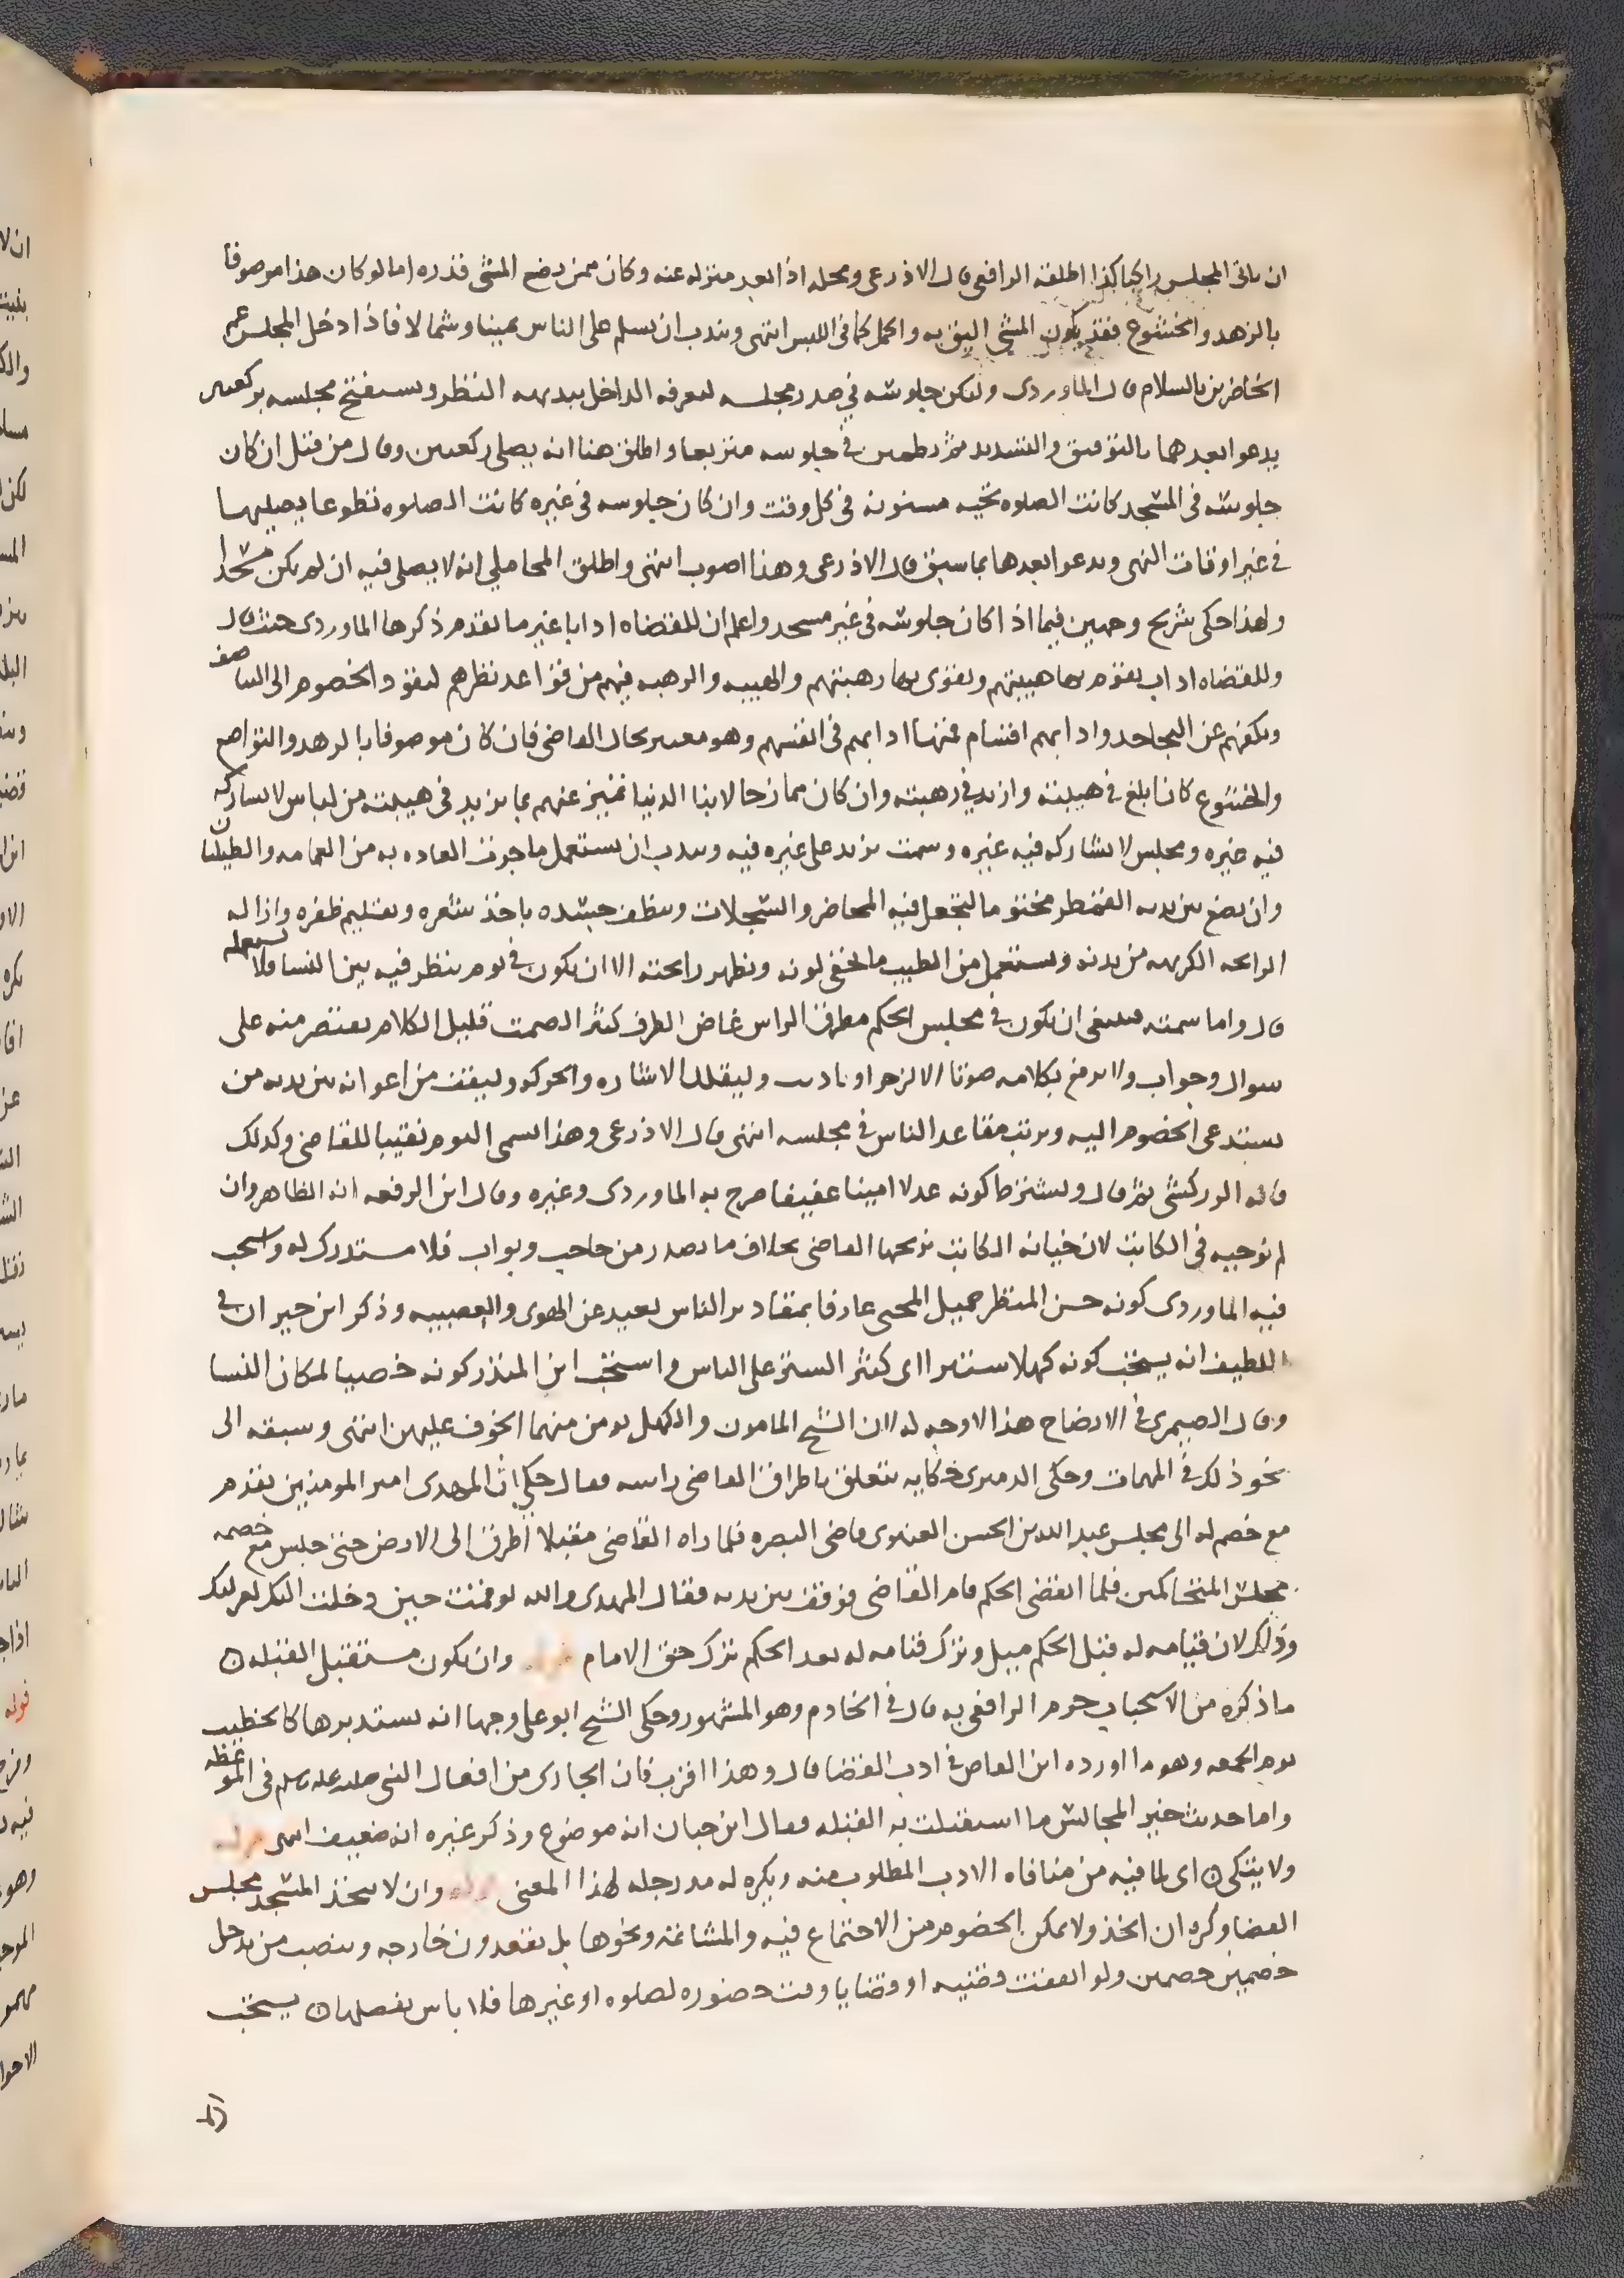 ان ياتى المجلس راكبا كذا اطلقه الرافعى قال الاذرعى ومحله اذا بعد منزله عنه وكان ممن يضع المشى قدره اما لو كان هذا موصوفا
بالزهد والخشوع فقد يكون المشى اليق به واكمل كما فى اللبس انتهى ويندب ان يسلم على الناس يمينا وشمالا فاذا دخل المجلس عم
الحاضرين بالسلام قال الماوردى وليكن جلوسه فى صدر مجلسه ليعرفه الداخل ببديهه النظر ويستفتح مجلسه بركعتين
يدعو بعدهما بالتوفيق والتسديد ثم يطمين فى جلوسه متربعا واطلق هنا انه يصلى ركعتين وقال من قبل ان كان
جلوسه فى المسجد كانت الصلوه تحيه مسنونه فى كل وقت وان كان جلوسه فى غيره كانت الصلوه تطوعا يصليها
فى غير اوقات النهى ويدعو بعدها بما سبق قال الاذرعى وهذا اصوب انتهى واطلق المحاملى انه لا يصلى فيه ان لم يكن مسجدا
ولهذا حكى شريح وجهين فيما اذا كان جلوسه فى غير مسجد واعلم ان للقضاه ادابا غير ما تقدم ذكرها الماوردى حيث قال
وللقضاه اداب تقوم بها هيبتهم وتقوى بها رهبتهم والهيبه والرهبه فيهم من قواعد نظرهم لتقود الخصوم الى التناصف
وتكفهم عن التجاحد وادابهم اقسام فمنها ادابهم فى انفسهم وهو معتبر بحال القاضى فان كان موصوفا بالزهد والتواضع
والخشوع كان ابلغ فى هيبته وازيد فى رهبته وان كان ممازحا لابنا الدنيا تميز عنهم بما يزيد فى هيبته من لباس لا يشاركه
فيه غيره ومجلس لا يشاركه فيه غيره وسمت يزيد على غيره فيه ويندب ان يستعمل ما جرت العاده به من العمامه والطيلسان
وان يضع بين يديه القمطر مختوما لتجعل فيه المحاضر والسجلات وينظف جسده باخذ شعره وتقليم ظفره وازاله
الرائحه الكريهه من بدنه ويستعمل من الطيب ما يخفى لونه وتظهر رائحته الا ان يكون فى يوم ينظر فيه بين النسا فلا يستعمله
قال واما سمته فينبغى ان يكون فى مجلس الحكم مطرق الراس غاض الطرف كثير الصمت قليل الكلام يقتصر منه على
سوال وجواب ولا يرفع بكلامه صوتا الا لزجر او تاديب وليقلل الاشاره والحركه وليقف من اعوانه بين يديه من
يستدعى الخصوم اليه ويرتب مقاعد الناس فى مجلسه انتهى قال الاذرعى وهذا يسمى اليوم نقيبا للقاضى وكذلك
قاله الزركشى ثم قال ويشترط كونه عدلا امينا عفيفا صرح به الماوردى وغيره وقال ابن الرفعه انه الظاهر وان
لم نوجبه فى الكاتب لان خيانه الكاتب يرىحها القاضى بخلاف ما يصدر من حاجب وبواب فلا مستدرك له واستحب
فيه الماوردى كونه حسن المنظر جميل المخبر عارفا بمقادير الناس بعيد عن الهوى والعصبيه وذكر ابن خيران فى
اللطيف انه يستحب كونه كهلا ستيرا اى كثير الستر على الناس واستحب ابن المنذر كونه خصيا لمكان النسا
وقال الصيمرى فى الايضاح هذا الاوجه له لان الشيخ المامون والكهل يومن منهما الخوف عليهن انتهى وسبقه الى
نحو ذلك فى المهمات وحكى الدميرى حكايه تتعلق باطراق القاضى راسه فقال حكى ان المهدى امير المومنين تقدم
مع خصم له الى مجلس عبد الله بن الحسن العنبرى قاضى البصره فلما راه القاضى مقبلا اطرق الى الارض حتى جلس مع خصمه
مجلس المتحاكمين فلما انقضى الحكم قام القاضى فوقف بين يديه فقال المهدى والله لو قمت حين دخلت اليك لعزلتك
وذلك لان قيامه له قبل الحكم ميل وترك قيامه له بعد الحكم ترك حق الامام قوله وان يكون مستقبل القبله ن
ما ذكره من الاستحباب جزم الرافعى به قال فى الخادم وهو المشهور وحكى الشيخ ابو على وجها انه يستدبرها كالخطيب
يوم الجمعه وهو ما اورده ابن القاص فى ادب القضا قال وهذا اقرب فان الجارى من افعال النبى صلى الله عليه وسلم فى الموعظه
واما حديث خير المجالس ما استقبلت به القبله فقال ابن حبان انه موضوع وذكر غيره انه ضعيف انتهى قوله
ولا يتكى ن اى لما فيه من منافاه الادب المطلوب منه ويكره له مد رجله لهذا المعنى قوله وان لا يتخذ المسجد مجلس
القضا وكره ان اتخذ ولا يمكن الخصوم من الاجتماع فيه والمشاتمه ونحوها بل يقعدون خارجه وينصب من يدخل
خصمين خصمين ولو اتفقت قضيه او قضايا وقت حضوره لصلوه او غيرها فلا باس بفصلها ن يستحب